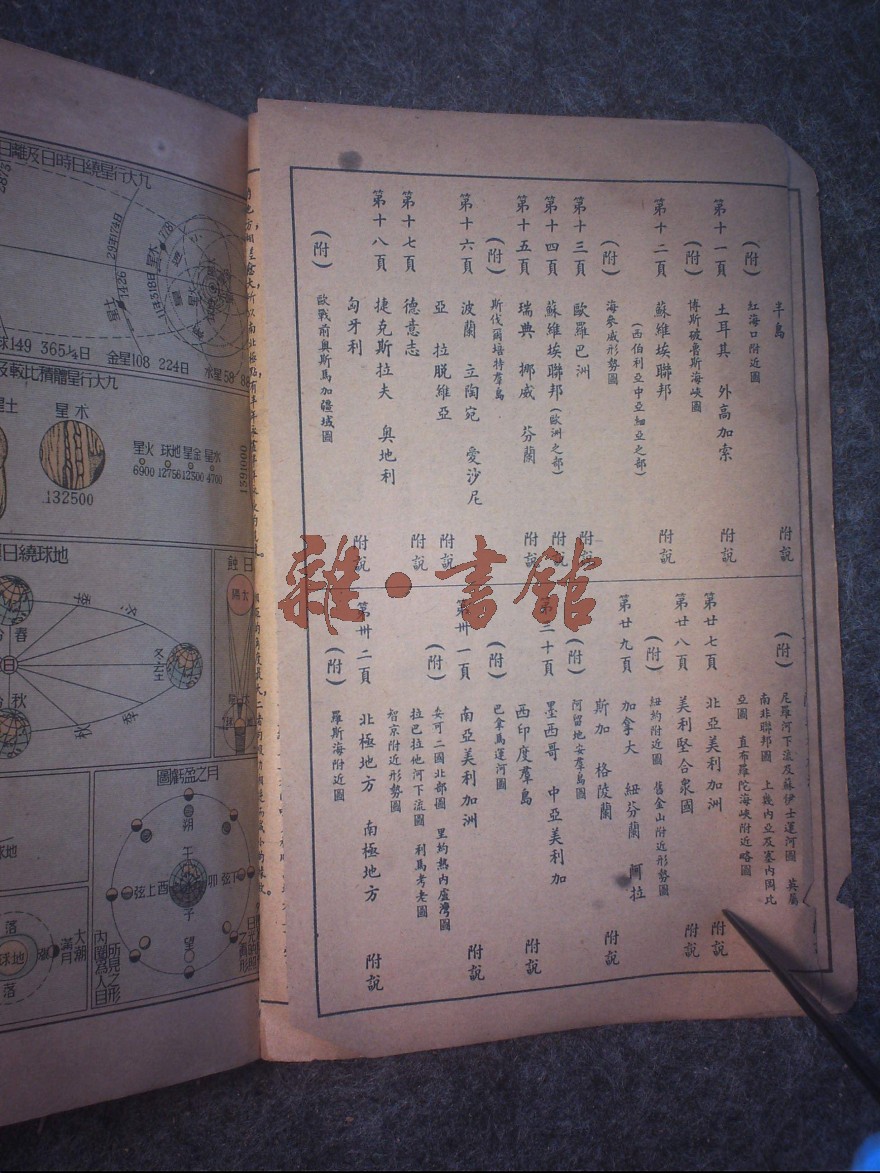 半島 附說
(附) 紅海口附近圖
第十一頁 土耳其 外高加索 附說
(附) 博斯破魯斯海峽圖
第十二頁 蘇維埃聯邦 附說
(西伯利亞中亞細亞之部)
(附) 海參威形勢圖
第十三頁 歐羅巴洲 附說
第十四頁 蘇維埃聯邦(歐洲之部) 附說
第十五頁 瑞典 挪威 芬蘭 附說
(附) 斯伐爾培特羣島
第十六頁 波蘭 立陶宛 愛沙尼
亞 拉脫維亞 附說
第十七頁 德意志 附說
第十八頁 捷克斯拉夫 奥地利
匈牙利 附說
(附) 歐戰前奥斯馬加疆域圖
(附) 尼羅河下流及蘇伊士運河圖 英屬
南非聯邦圖 上幾內亞及塞內岡比
亞圖 直布羅陀海峽附近略圖
第廿七頁 北亞美利加洲 附說
第廿八頁 美利堅合衆國 附說
(附) 紐約附近圖 舊金山附近形勢圖
第廿九頁 加拿大 紐芬蘭 阿拉
斯加 格陵蘭 附說
(附) 阿留地安羣島圖
第三十頁 墨西哥 中亞美利加
西印度羣島 附說
(附) 巴拿馬運河圖
第卅一頁 南亞美利加洲 附說
(附) 委可二國北部圖 里約熱內盧灣圖
拉巴拉他河下流圖 利馬考老圖
智京附近形勢圖
第卅二頁 北極地方 南極地方 附說
(附) 羅斯海附近圖
雜·書館
九大行星繞日時日及離日
29年174日
1426
11年318日
778
球149 365¼日 金星108 224日 水星58 88
九大行星體積比較及
木星
132500
火星 地球 金星 水星
6900 12756 12500 4700
1391000
地球繞日
日蝕
太陽
冬至
春
秋
冬
季
月之盈虧圖
朔
上弦
望
午
子
酉
卯
大潮
滿月
落
地球
內圈為人目
所見之形